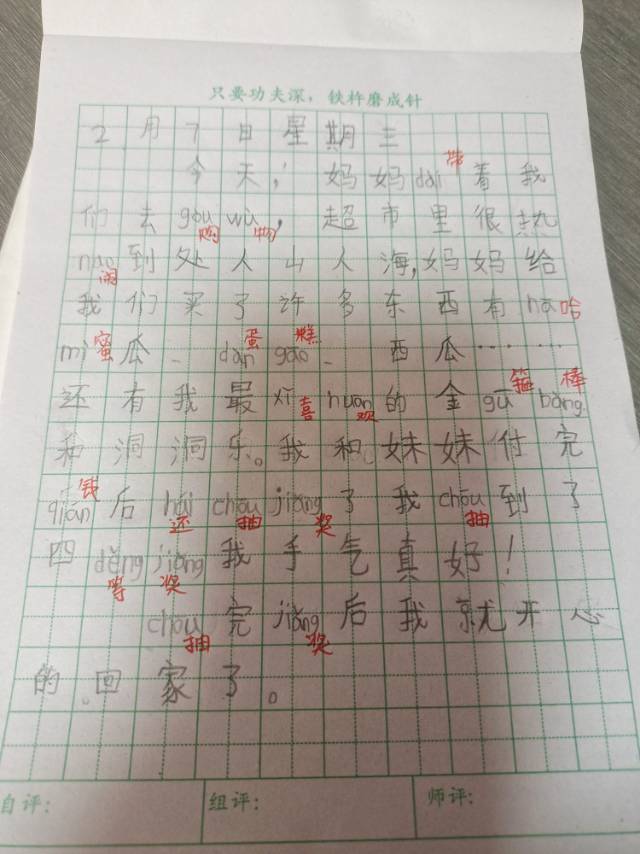 只要功夫深，铁杵磨成针
2月7日星期三
今天，妈妈dài带着我
们去gòu购wù物，超市里很热
nào闹到处人山人海，妈妈给
我们买了许多东西有hā哈
mì蜜瓜、dàn蛋gāo糕、西瓜……
还有我最xǐ喜huan欢的金gū箍bàng棒
和洞洞乐。我和妹妹付完
qián钱后hái还chōu抽jiǎng奖了我chōu抽到了
四děng等jiǎng奖我手气真好！
chōu抽完jiǎng奖后我就开心
的回家了。
自评： 组评： 师评：